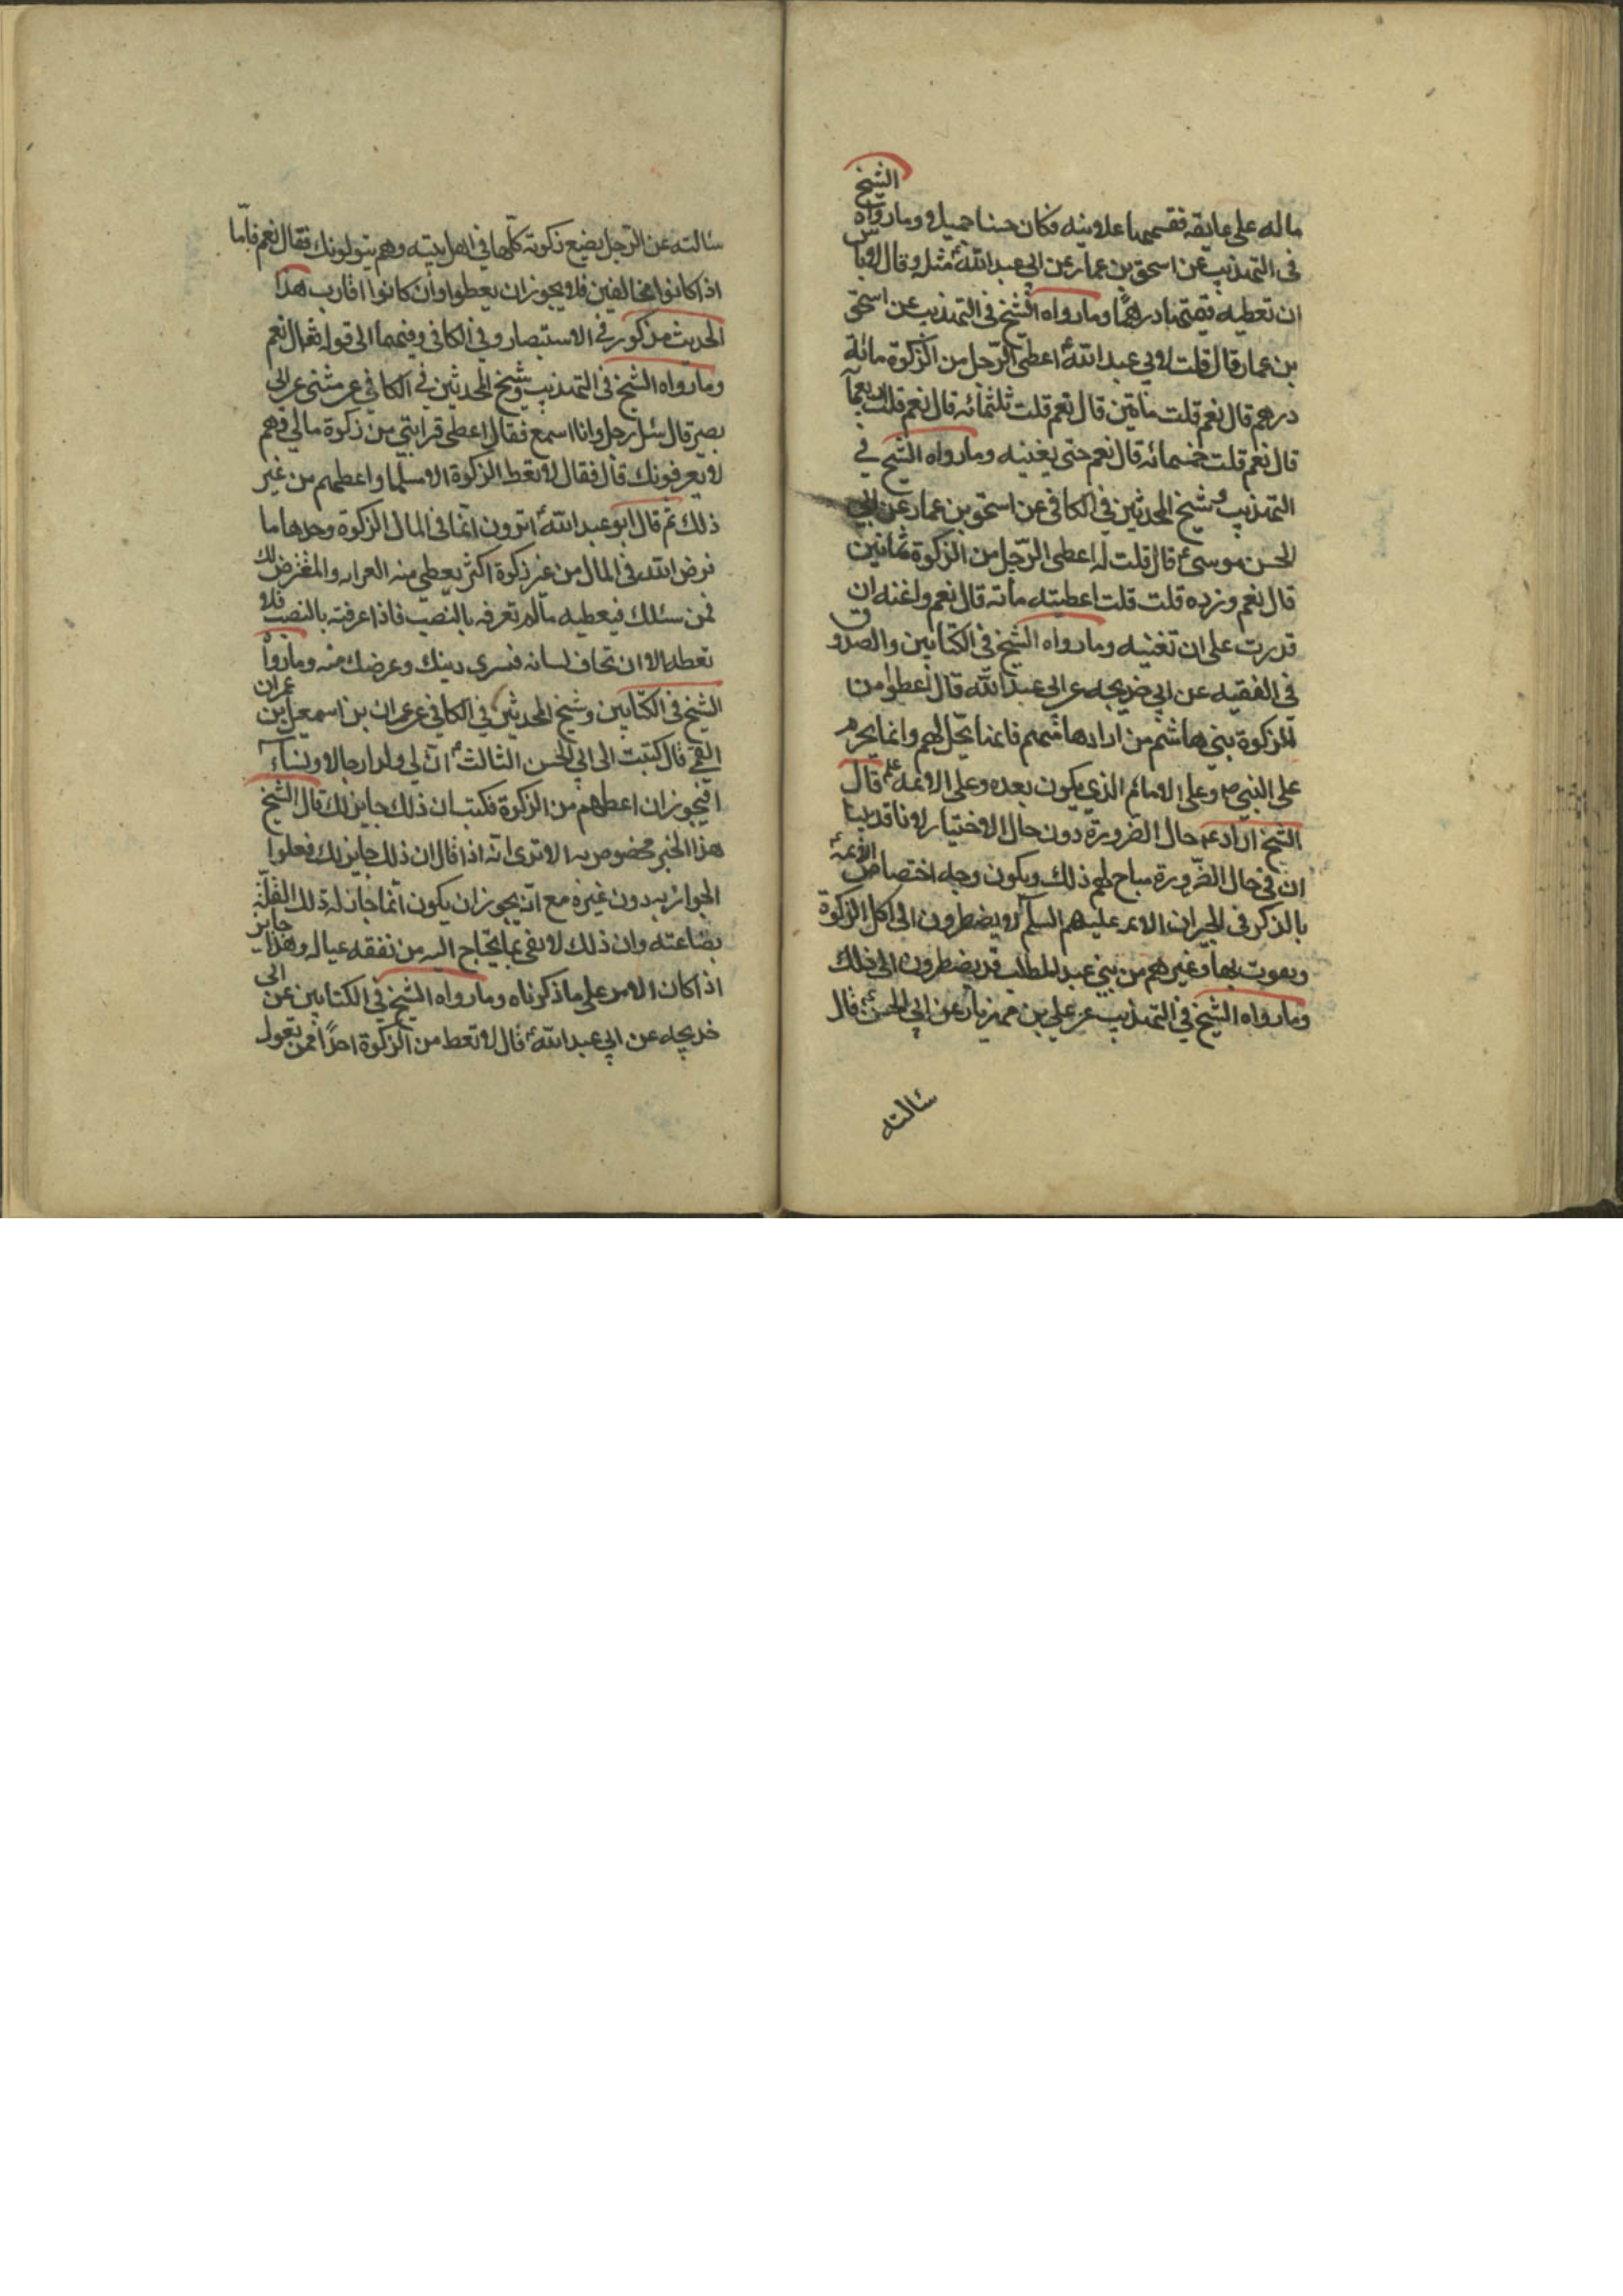 ماله على عاتقه فقسمها علانية فكان حسنا جميلا وما رواه الشيخ
في التهذيب عن اسحق بن عمار عن ابي عبد الله ع مثله وقال لا باس
ان تعطيه قيمتها درهما وما رواه الشيخ في التهذيب عن اسحق
بن عمار قال قلت لابي عبد الله ع اعطي الرجل من الزكوة مائة
درهم قال نعم قلت مأتين قال نعم قلت ثلثمائه قال نعم قلت اربعمأ
قال نعم قلت خمسمائه قال نعم حتى يغنيه وما رواه الشيخ في
التهذيب وشيخ المحدثين في الكافي عن اسحق بن عمار عن ابي
الحسن موسى ع قال قلت له اعطي الرجل من الزكوة ثمانين
قال نعم وزده قلت قلت اعطيته مأته قال نعم واغنه ان
قدرت على ان تغنيه وما رواه الشيخ في الكتابين والصدوق
في الفقيه عن ابي خديجه عن ابي عبد الله قال اعطوا من
الزكوة بني هاشم من ارادها منهم فانما يحل لهم وانما يحرم
على النبي ص وعلى الامام الذي يكون بعده وعلى الائمه علم قال
الشيخ اراد ع حال الضرورة دون حال الاختيار لانا قد بينا
ان في حال الضرورة مباح لهم ذلك ويكون وجه اختصاص الائمة
بالذكر في الخبر ان الائمه عليهم السلم لا يضطرون الى اكل الزكوة
وبعوت بها وغيرهم من بني عبد المطلب قد يضطرون الى ذلك
وما رواه الشيخ في التهذيب عن علي بن مهزيار عن ابي الحسن ع قال
سالته
سالته عن الرجل يضع زكوته كلها في اهل بيته وهم يتولونك فقال نعم فاما
اذا كانوا مخالفين فلا يجوز ان يعطوا وان كانوا اقارب هذا
الحديث مذكور في الاستبصار وفي الكافي وفيهما الى قوله فقال نعم
وما رواه الشيخ في التهذيب وشيخ المحدثين في الكافي عن مثنى عن ابي
بصير قال سئل رجل وانا اسمع فقال اعطي قرابتي من زكوة مالي وهم
لا يعرفونك قال فقال لا تعط الزكوة الا مسلما واعطهم من غير
ذلك ثم قال ابو عبد الله ع اترون انما في المال الزكوة وحدها ما
فرض الله في المال من غير زكوة اكثر يعطي منه القرابه والمعترض لك
ممن سئلك فيعطيه مالم تعرفه بالنصب فاذا عرفته بالنصب فلا
تعطه الا ان تخاف لسانه فتشري دينك وعرضك منه وما رواه
الشيخ في الكتابين وشيخ المحدثين في الكافي عن عمران بن اسمعيل بن عمران
القمي قال كتبت الى ابي الحسن الثالث ع ان لي ولدا رجالا ونساء
افيجوز ان اعطهم من الزكوة فكتب ان ذلك جايز لك قال الشيخ
هذا الخبر مخصوص به الا ترى انه اذا قال ان ذلك جايز لك فعلوا
الجواز به دون غيره مع انه يجوز ان يكون انما جاز له ذلك لقلة
بضاعته وان ذلك لا يفي بما يحتاج اليه من نفقه عياله وهذا جايز
اذا كان الامر على ما ذكرناه وما رواه الشيخ في الكتابين عن ابي
خديجه عن ابي عبد الله ع قال لا تعط من الزكوة احدا ممن تعول